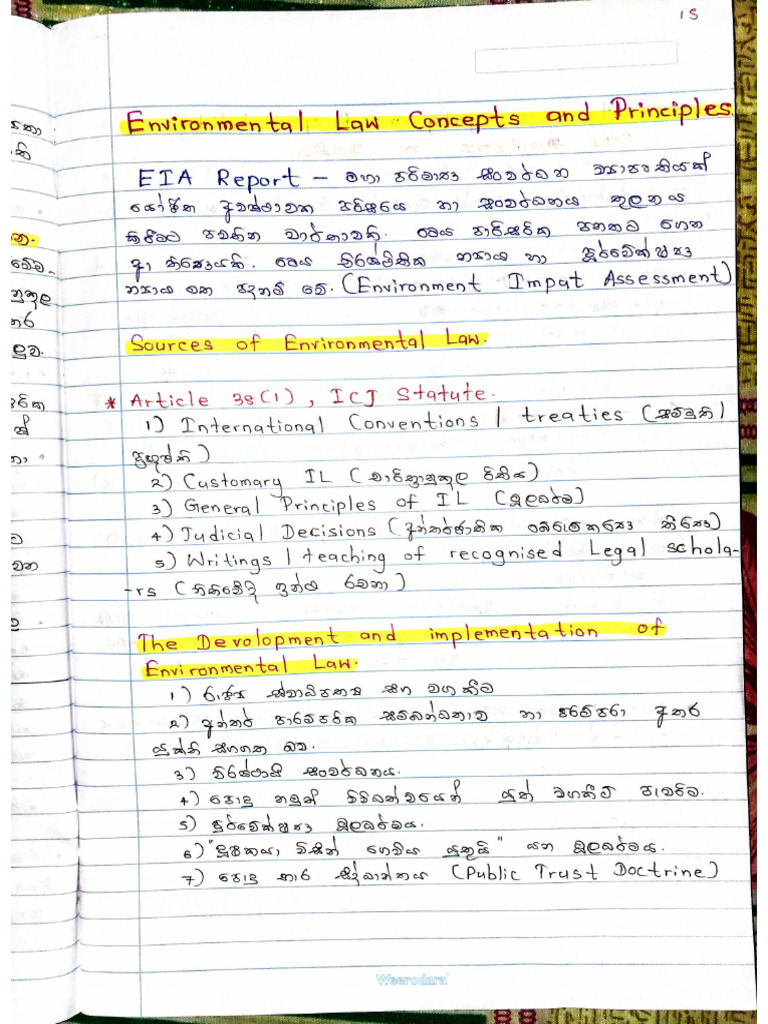 15
Environmental Law Concepts and Principles.
EIA Report – මහා පරිමාණ සංවර්ධන ව්‍යාපෘතියක්
යෝජිත අවස්ථාවක පරිසරය හා සංවර්ධනය තුලනය
කිරීමට පවතින වාර්තාවකි. මෙය පාරිසරික පනතට ගෙන
ආ තීරණයකි. මෙය න්‍යාය හා පූර්වේක්ෂණ
න්‍යාය මත පදනම් වේ. (Environment Impat Assessment)
Sources of Environmental Law.
* Article 38(1), ICJ Statute.
1) International Conventions / treaties (සම්මුති /
ප්‍රඥප්ති)
2) Customary IL (චාරිත්‍රානුකූල නීතිය)
3) General Principles of IL (මූලධර්ම)
4) Judicial Decisions (අන්තර්ජාතික තීරණ)
5) Writings / teaching of recognised Legal schola-
-rs (නීතිවේදී ග්‍රන්ථ රචනා)
The Devolopment and implementation of
Environmental Law.
1) රාජ්‍ය ස්වාධිපත්‍ය සහ වගකීම
2) අන්තර් පාරම්පරික සම්බන්ධතාව හා පරම්පරා අතර
යුක්ති සහගත බව.
3) තිරසාර සංවර්ධනය.
4) පොදු නමුත් වගකීම් පැවරීම.
5) පූර්වේක්ෂණ මූලධර්මය.
6) "දූෂකයා විසින් ගෙවිය යුතුයි" යන මූලධර්මය.
7) පොදු භාර සිද්ධාන්තය (Public Trust Doctrine)
Weerodara